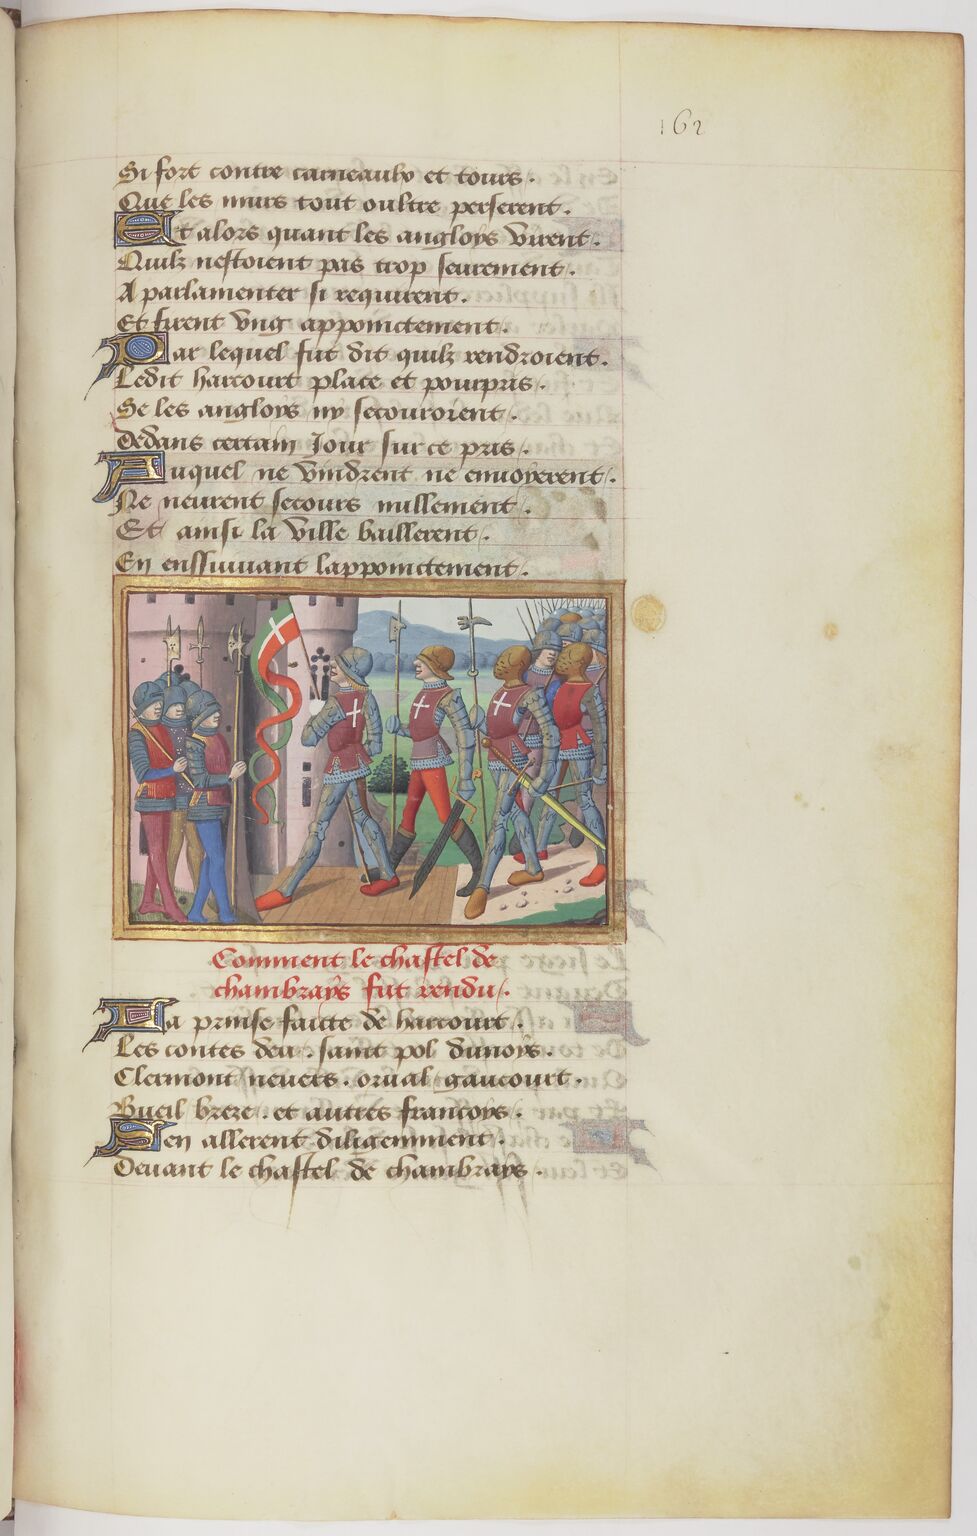 162
Si fort contre carneaulx et tours.
Que les murs tout oultre perserent.
Et alors quant les angloys virent.
Quilz nestoient pas trop seurement.
A parlamenter si requirent.
Et firent vng appoinctement.
Par lequel fut dit quilz rendroient.
Ledit harcourt place et pourpris.
Se les angloys ny secouroient.
Dedans certain Jour sur ce pris.
Auquel ne vindrent ne enuoyerent.
Ne neurent secours nullement.
Et ainsi la ville baillerent.
En enssuiuant lappoinctement.
Comment le chastel de
chambrays fut rendu.
La prinse faicte de harcourt.
Les contes deu. saint pol dunoys.
Clermont neuers. orual gaucourt.
Bueil breze. et autres francoys.
Sen allerent diligemment.
Deuant le chastel de chambrays.